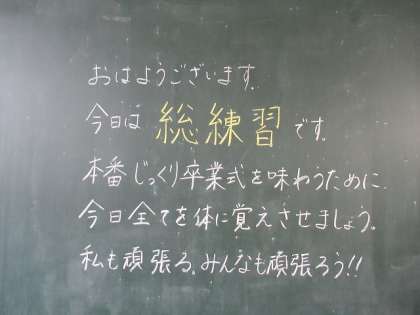 おはようございます。
今日は 総練習 です。
本番じっくり卒業式を味わうために、
今日全てを体に覚えさせましょう。
私も頑張る。みんなも頑張ろう!!